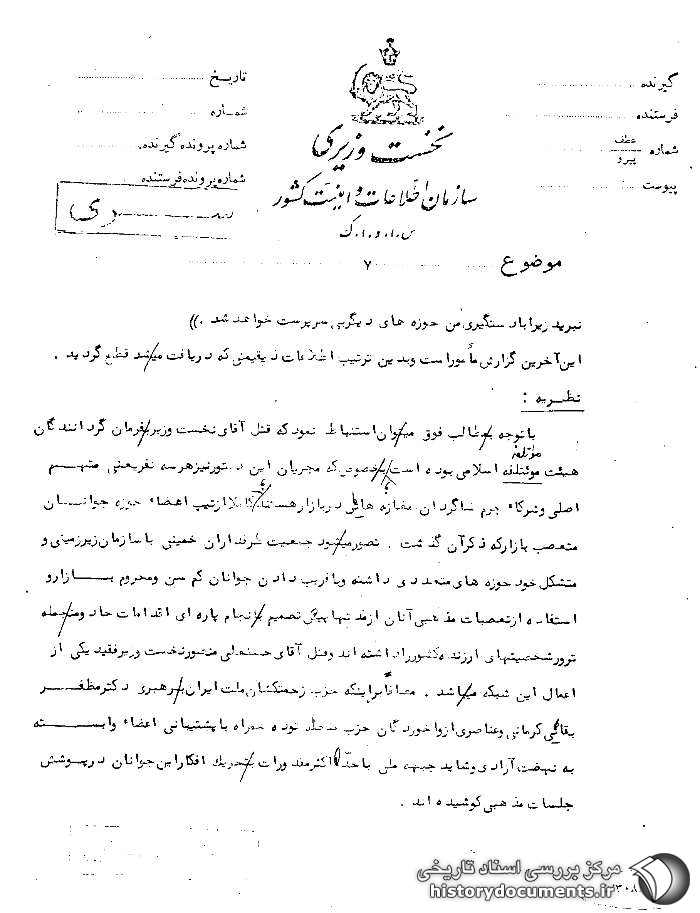 گیرنده
فرستنده
شماره عطف پیرو
پیوست
نخست وزیری
سازمان اطلاعات و امنیت کشور
س.ا.و.ا.ک
تاریخ
شماره
شماره پرونده گیرنده
شماره پرونده فرستنده
سری
موضوع ۷
نبرید زیرا باد ستگیری من حوزه های دیگر بی سرپرست خواهد شد . ))
این آخرین گزارش مأموراست وبدین ترتیب اطلاعات ذیقیمتی که دریافت میشد قطع گردید .
نظریه :
باتوجه بمطالب فوق میتوان استنباط نمود که قتل آقای نخست وزیر بفرمان گردانندگان
مؤتلفه
هیئت موئتلفه اسلامی بوده است بخصوص که مجریان این دستورنیزهرسه نفریعنی متهم
اصلی وشرکاء جرم شاگردان مغازه هائی دربازارهستند کاملا ازتیپ اعضاء حوزه جوانان
متعصب بازارکه ذکرآن گذشت . تصورمیشود جمعیت طرفداران خمینی باسازمان زیرزمینی و
متشکل خود حوزه های متعددی داشته وبا فریب دادن جوانان کم سن ومحروم بازارو
استفاده ازتعصبات مذهبی آنان ازمدتها پیش تصمیم بانجام پاره ای اقدامات حاد ومنجمله
ترورشخصیتهای ارزنده کشورراداشته اند وقتل آقای حسنعلی منصورنخست وزیرفقید یکی از
اعمال این شبکه میباشد . مضافاً براینکه حزب زحمتکشان ملت ایران برهبری دکترمظفر
بقائی کرمانی وعناصری ازواخوردگان حزب منحله توده همراه باپشتیبانی اعضاء وابسته
به نهضت آزادی وشاید جبهه ملی باحد اکثرمقدورات بتحریک افکاراین جوانان درپوشش
جلسات مذهبی کوشیده اند .
مرکز بررسی اسناد تاریخی
historydocuments.ir